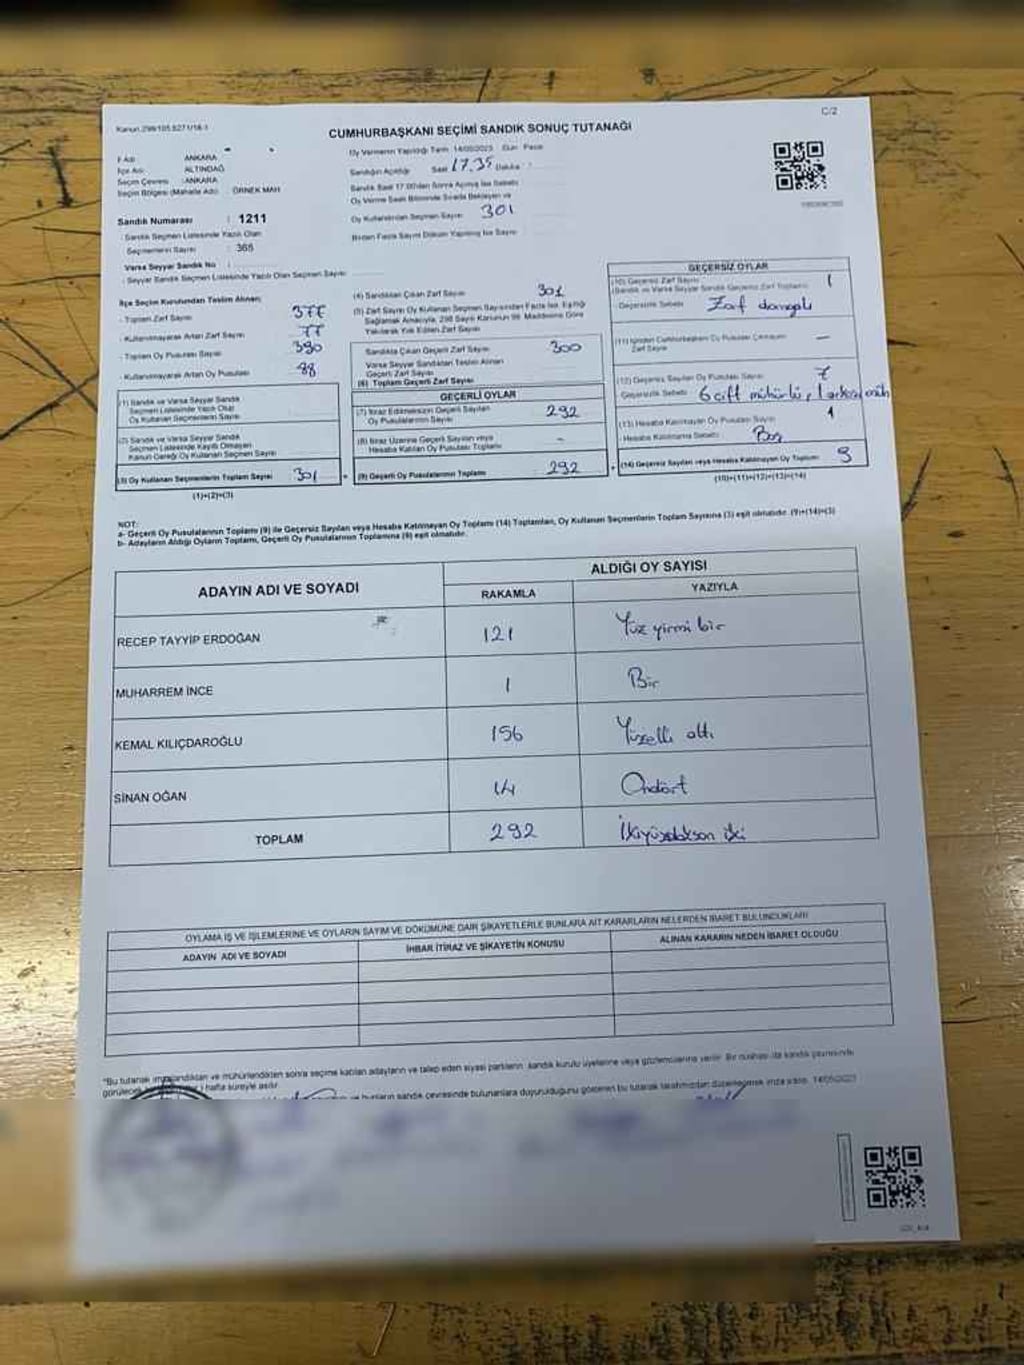 Kanun 298/105.6271/16-1
C/2
CUMHURBAŞKANI SEÇİMİ SANDIK SONUÇ TUTANAĞI
İl Adı : ANKARA
İlçe Adı : ALTINDAĞ
Seçim Çevresi : ANKARA
Seçim Bölgesi (Mahalle Adı) : ÖRNEK MAH
Sandık Numarası : 1211
- Sandık Seçmen Listesinde Yazılı Olan
Seçmenlerin Sayısı : 365
Varsa Seyyar Sandık No :
- Seyyar Sandık Seçmen Listesinde Yazılı Olan Seçmen Sayısı:
Oy Vermenin Yapıldığı Tarih 14/05/2023 Gün : Pazar
Sandığın Açıldığı Saat 17.35 Dakika :
Sandık Saat 17.00'dan Sonra Açılmış İse Sebebi
Oy Verme Saati Bitiminde Sırada Bekleyen ve
Oy Kullandırılan Seçmen Sayısı 301
Birden Fazla Sayım Döküm Yapılmış İse Sayısı
İlçe Seçim Kurulundan Teslim Alınan:
- Toplam Zarf Sayısı 377
- Kullanılmayarak Artan Zarf Sayısı 77
- Toplam Oy Pusulası Sayısı 390
- Kullanılmayarak Artan Oy Pusulası 88
(1) Sandık ve Varsa Seyyar Sandık
Seçmen Listesinde Yazılı Olup
Oy Kullanan Seçmenlerin Sayısı
(2) Sandık ve Varsa Seyyar Sandık
Seçmen Listesinde Kayıtlı Olmayan
Kanun Gereği Oy Kullanan Seçmen Sayısı
(3) Oy Kullanan Seçmenlerin Toplam Sayısı 301
(1)+(2)=(3)
(4) Sandıktan Çıkan Zarf Sayısı 301
(5) Zarf Sayısı Oy Kullanan Seçmen Sayısından Fazla İse, Eşitliği
Sağlamak Amacıyla, 298 Sayılı Kanunun 98. Maddesine Göre
Yakılarak Yok Edilen Zarf Sayısı
Sandıkta Çıkan Geçerli Zarf Sayısı 300
Varsa Seyyar Sandıktan Teslim Alınan
Geçerli Zarf Sayısı
(6) Toplam Geçerli Zarf Sayısı
GEÇERLİ OYLAR
(7) İtiraz Edilmeksizin Geçerli Sayılan
Oy Pusulalarının Sayısı 292
(8) İtiraz Üzerine Geçerli Sayılan veya
Hesaba Katılan Oy Pusulası Toplamı -
(9) Geçerli Oy Pusulalarının Toplamı 292
GEÇERSİZ OYLAR
(10) Geçersiz Zarf Sayısı 1
(Sandık ve Varsa Seyyar Sandık Geçersiz Zarf Toplamı)
- Geçersizlik Sebebi: Zarf damgalı
(11) İçinden Cumhurbaşkanı Oy Pusulası Çıkmayan
Zarf Sayısı —
(12) Geçersiz Sayılan Oy Pusulası Sayısı 7
Geçersizlik Sebebi 6 çift mühürlü, 1 arkası müh
(13) Hesaba Katılmayan Oy Pusulası Sayısı 1
- Hesaba Katılmama Sebebi: Boş
(14) Geçersiz Sayılan veya Hesaba Katılmayan Oy Toplamı 9
(10)+(11)+(12)+(13)=(14)
NOT:
a- Geçerli Oy Pusulalarının Toplamı (9) ile Geçersiz Sayılan veya Hesaba Katılmayan Oy Toplamı (14) Toplamları, Oy Kullanan Seçmenlerin Toplam Sayısına (3) eşit olmalıdır. (9)+(14)=(3)
b- Adayların Aldığı Oyların Toplamı, Geçerli Oy Pusulalarının Toplamına (9) eşit olmalıdır.
ADAYIN ADI VE SOYADI
ALDIĞI OY SAYISI
RAKAMLA YAZIYLA
RECEP TAYYİP ERDOĞAN 121 Yüz yirmi bir
MUHARREM İNCE 1 Bir
KEMAL KILIÇDAROĞLU 156 Yüzelli altı
SİNAN OĞAN 14 Ondört
TOPLAM 292 İkiyüzdoksan iki
OYLAMA İŞ VE İŞLEMLERİNE VE OYLARIN SAYIM VE DÖKÜMÜNE DAİR ŞİKAYETLERLE BUNLARA AİT KARARLARIN NELERDEN İBARET BULUNDUKLARI
ADAYIN ADI VE SOYADI İHBAR İTİRAZ VE ŞİKAYETİN KONUSU ALINAN KARARIN NEDEN İBARET OLDUĞU
*Bu tutanak imzalandıktan ve mühürlendikten sonra seçime katılan adayların ve talep eden siyasi partilerin sandık kurulu üyelerine veya gözlemcilerine verilir. Bir nüshası da sandık çevresinde
hafta süreyle asılır.
ve bunların sandık çevresinde bulunanlara duyurulduğunu gösteren bu tutanak tarafımızdan düzenlenerek imza edildi. 14/05/2023